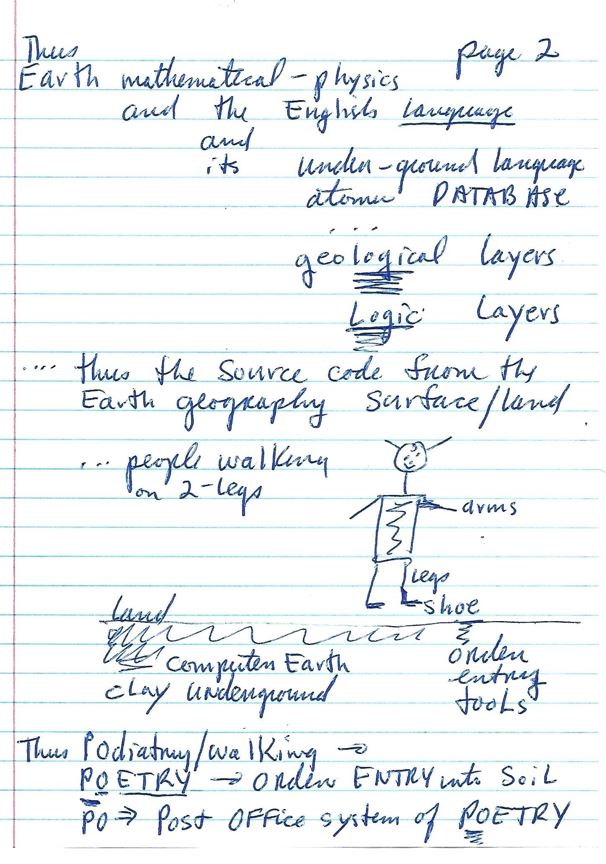 Thus page 2
Earth mathematical - physics
and the English language
and
its under-ground language
atomic DATABASE
....
geological Layers
Logic Layers
.... thus the source code from the
Earth geography surface/land
... people walking
on 2-legs
arms
legs
shoe
land
computer Earth
clay underground
order
entry
tools
Thus Podiatry/walking →
POETRY → Order ENTRY into Soil
PO ⇒ Post Office system of POETRY